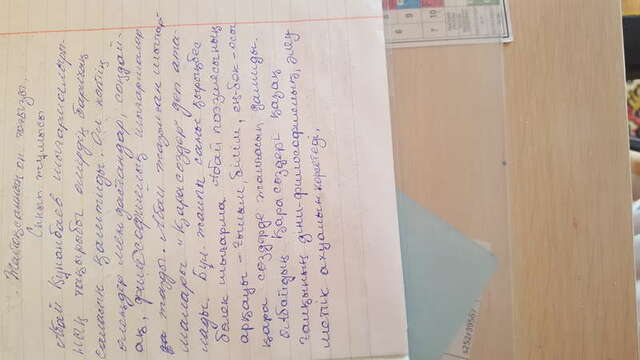 Желтоқсанның он тоғызы.
Сынып жұмысы
Абай Құнанбаев шығармалары-
ның тақырыбы өмірдің барлық
саласын қамтиды. Ол көптің
өлеңдер мен дастандар, сондай-
ақ, философиялық шығармалар
да жазды. Абай жазылған шығар-
малары "Қарасөздер" деп ата-
лады. Бұл жалпы саны қырықбес
бөлек шығарма Абай поэзиясының
арқауы - ғылым, білім, еңбек - осы
қара сөздерде жалғасын дамиды.
Абайдың қарасөздері қазақ
халқының діни-философиялық, әлеу
меттік ахуалын көрсетеді.
s252r39567
6
8
9
7
10